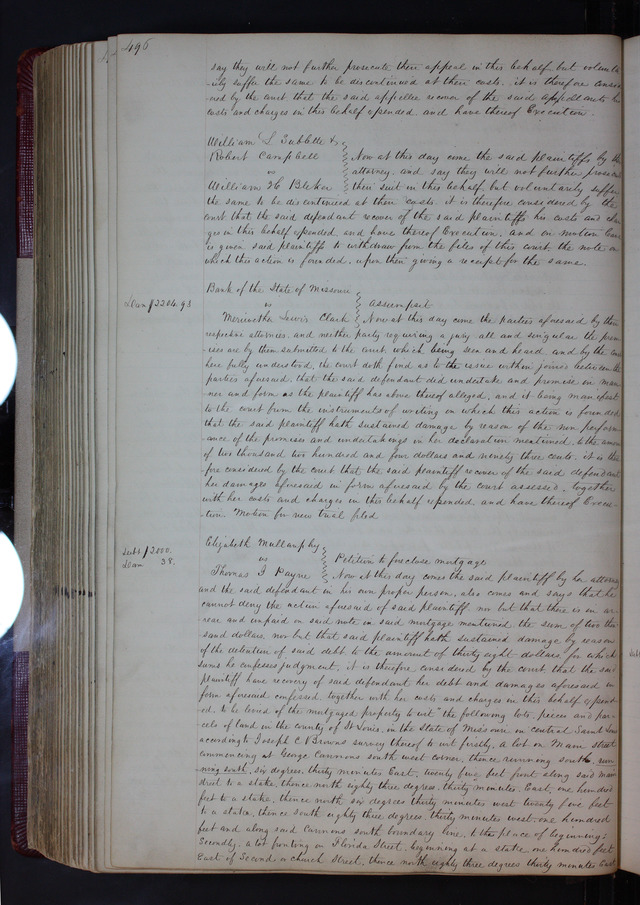 496
say they will not further prosecute their appeal in this behalf but volunta
-rily suffer the same to be discontinued at their costs. it is therefore consid
-ered by the court that the said appellee recover of the said appellants his
costs and charges in this behalf expended and have thereof Execution.
William L Sublette &
Robert Campbell Now at this day come the said plaintiffs by their
vs attorney and say they will not further prosecute
William H Bleker their suit in this behalf but voluntarily suffer
the same to be discontinued at their costs. it is therefore considered by the
court that the said defendant recover of the said plaintiffs his costs and char
ges in this behalf expended and have thereof Execution, and on motion leave
is given said plaintiffs to withdraw from the files of this court the note on
which this action is founded, upon their giving a receipt for the same.
Bank of the State of Missouri
Dam $2204.93 vs assumpsit
Meriwether Lewis Clark Now at this day come the parties aforesaid by their
respective attornies, and neither party requiring a jury all and singular the prem
-ises are by them submitted to the court, which being seen and heard and by the court
here fully understood, the court doth find as to the issue within joined between the
parties aforesaid, that the said defendant did undertake and promise in man
ner and form as the plaintiff has above thereof alleged, and it being manifest
to the court from the instruments of writing on which this action is founded
that the said plaintiff hath sustained damage by reason of the non perform
-ance of the promises and undertakings in her declaration mentioned to the amount
of two thousand two hundred and four dollars and ninety three cents. it is there
fore considered by the court that the said plaintiff recover of the said defendant
her damages aforesaid in form aforesaid by the court assessed, together
with her costs and charges in this behalf expended and have thereof Execu-
-tion. Motion for new trial filed
Elizabeth Mullanphy
Debt $2000. vs Petition to foreclose mortgage
Dam 38. Thomas J Payne Now at this day comes the said plaintiff by her attorney
and the said defendant in his own proper person, also comes and says that he
cannot deny the action aforesaid of said plaintiff nor but that there is in ar-
rear and unpaid on said note in said mortgage mentioned, the sum of two thou
sand dollars, nor but that said plaintiff hath sustained damage by reason
of the detention of said debt to the amount of thirty eight dollars, for which
sums he confesses judgment, it is therefore considered by the court, that the said
plaintiff have recovery of said defendant her debt and damages aforesaid in
form aforesaid confessed, together with her costs and charges in this behalf expend
-ed, to be levied of the mortgaged property to wit "the following lots, pieces and par-
cels of land in the county of St Louis, in the State of Missouri in central Saint Louis
according to Joseph C Browns survey thereof to wit firstly, a lot on Main street
commencing at George Cannons south west corner, thence running south, run
ning south, six degrees, thirty minutes East, twenty five feet front along said main
street to a stake, thence north eighty three degrees, thirty minutes, East, one hundred
feet to a stake, thence north six degrees thirty minutes west twenty five feet
to a stake, thence south eighty three degrees, thirty minutes west, one hundred
feet and along said Cannons south boundary line, to the place of beginning;
Secondly, a lot fronting on Florida Street, beginning at a stake one hundred feet
East of Second or church Street, thence north eighty three degrees thirty minutes East